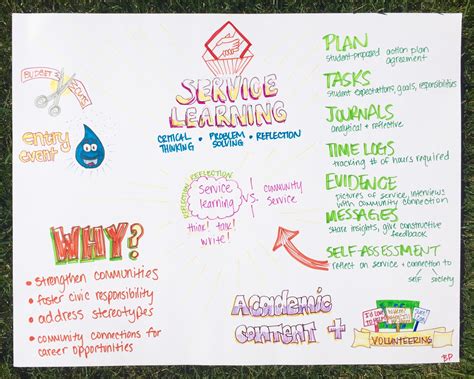 BUDGET
SERVICE
LEARNING
CRITICAL THINKING • PROBLEM SOLVING • REFLECTION
entry
event
PLAN
student-proposed action plan
agreement
TASKS
student expectations, goals, responsibilities
JOURNALS
analytical + reflective
TIME LOGS
tracking # of hours required
EVIDENCE
pictures of service, interviews
with community connection
MESSAGES
share insights, give constructive
feedback
SELF-ASSESSMENT
reflect on service + connection to
self society
REFLECTION
service
learning
vs.
community
service
think! talk!
write!
WHY?
• strengthen communities
• foster civic responsibility
• address stereotypes
• community connections for
career opportunities
Academic
content +
VOLUNTEERING
BP